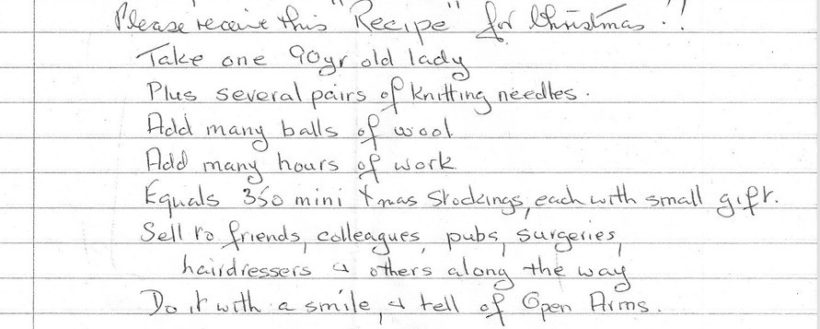 Please receive this "Recipe" for Christmas.!!
Take one 90yr old lady
Plus several pairs of knitting needles.
Add many balls of wool
Add many hours of work
Equals 350 mini Xmas Stockings, each with small gift.
Sell to friends, colleagues, pubs, surgeries,
hairdressers & others along the way
Do it with a smile, & tell of Open Arms.